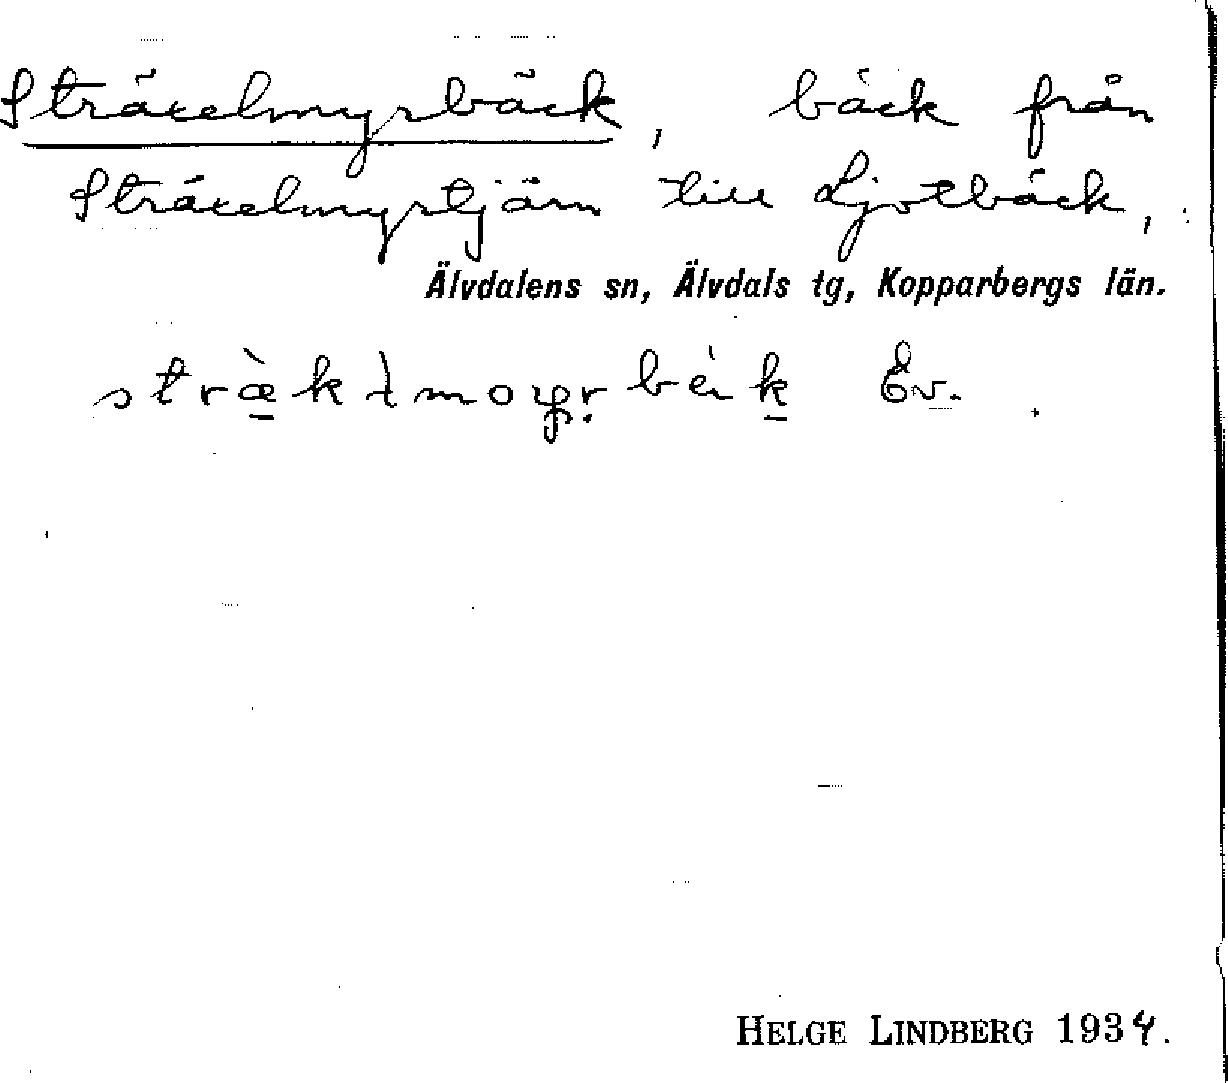 Sträxelmyrbäck, bäck från
Sträxelmyrtjärn till Ljotbäck,
Älvdalens sn, Älvdals tg, Kopparbergs län.
Ev.
HELGE LINDBERG 1934.